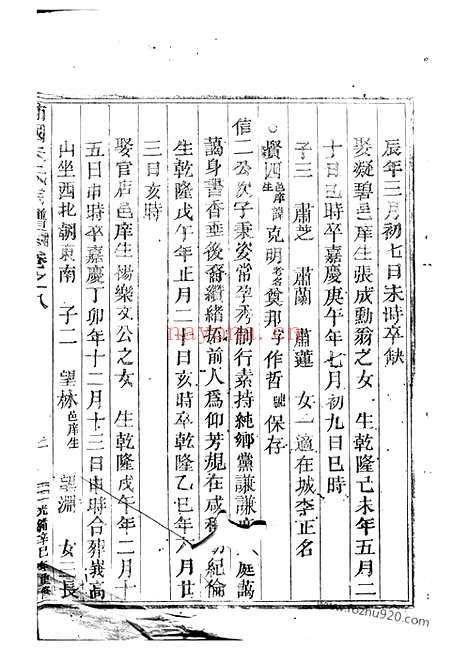 辰年三月初七日未時卒缺
娶凝碧邑庠生張成勳翁之女 生乾隆己未年五月二
十日巳時卒嘉慶庚午年七月初九日巳時
子三 肅芝 肅蘭 肅蓮 女一適在城李正名
賢四邑庠生諱克明考名奠邦字作哲號保存
信二公次子秉姿常孕秀制行素持純鄉黨謙謙 庭藹
藹身書香垂後裔纘緒拓前人爲仰芳規在咸稱 紀倫
生乾隆戊午年正月二十日亥時卒乾隆乙巳年 月廿
三日亥時
娶官唐邑庠生楊樂文公之女 生乾隆戊午年二月十
五日申時卒嘉慶丁卯年十二月十三日申時合葬莪高
山坐西北朝東南 子二 望林邑庠生 望淵 女二長
卷之八
光緒辛巳
nayona.cn
www.pdf4book.com